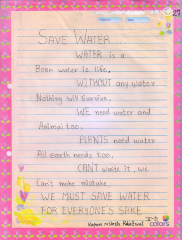 SAVE WATER
WATER is a
Boon water is life,
WITHOUT any water
Nothing will survive,
WE need water and
Animal too,
PLANTS need water
All earth needs too,
CAN'T waste it, we
Can't make mistake
WE MUST SAVE WATER
FOR EVERYONE'S SAKE
colors